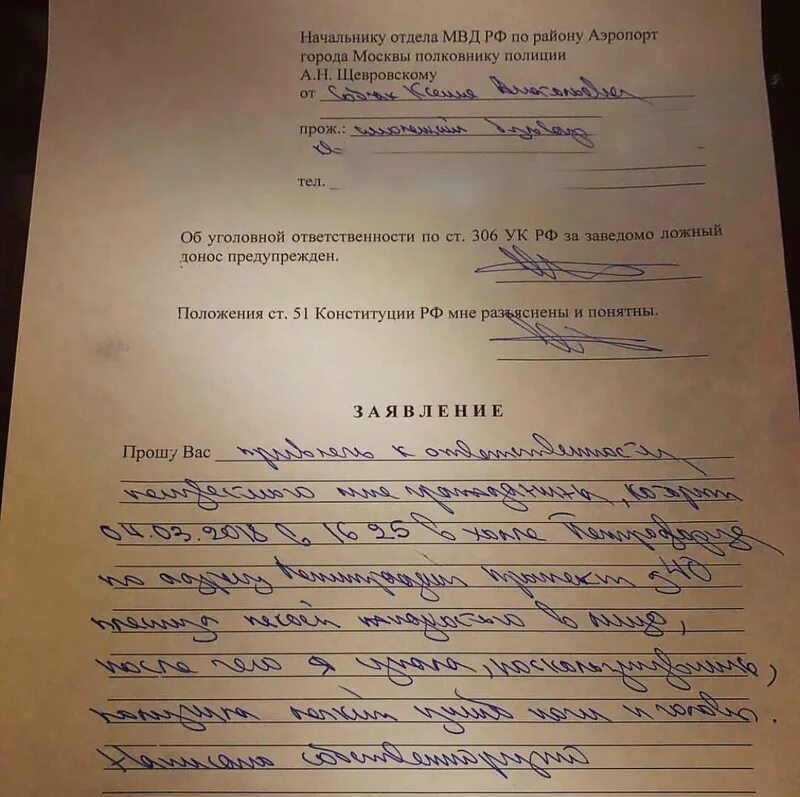 Начальнику отдела МВД РФ по району Аэропорт
города Москвы полковнику полиции
А.Н. Щевровскому
от Собчак Ксения Анатольевна
прож.: бульвар
тел.
Об уголовной ответственности по ст. 306 УК РФ за заведомо ложный
донос предупрежден.
Положения ст. 51 Конституции РФ мне разъяснены и понятны.
ЗАЯВЛЕНИЕ
Прошу Вас привлечь к ответственности
неизвестного мне гражданина, который
04.03.2018 в 16 25 в холле
по адресу Ленинградский проспект
в лицо,
после чего я упала, поскользнувшись,
ушиб ноги и головы.
Написано собственноручно